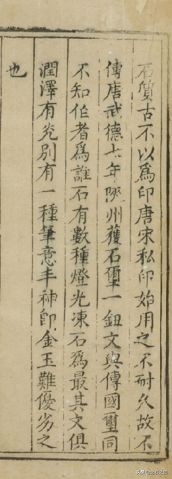 石質古不以為印唐宋私印始用之不耐久故不
傳唐武德七年陝州獲石璽一鈕文與傳國璽同
不知作者為誰石有數種燈光凍石為最其文俱
潤澤有光別有一種筆意丰神即金玉難優劣之
也